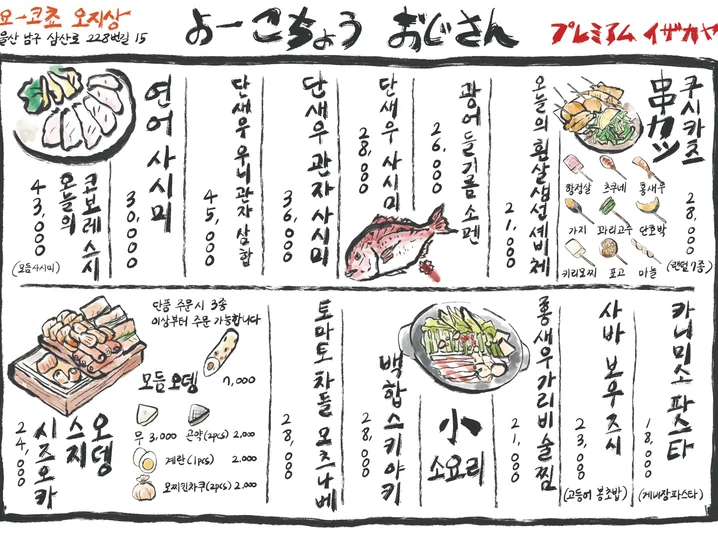 요-코쵸 오지상
울산 남구 삼산로 228번길 15
よーこちょう おじさん
プレミアム イザカヤ
쿠시카츠
串カツ
28,000
(랜덤 7종)
항정살
츠쿠네
홍새우
가지
꽈리고추
단호박
키리모찌
표고
마늘
오늘의 흰살생선 세비체
21,000
광어 들기름 소멘
26,000
단새우 사시미
28,000
단새우 관자 사시미
36,000
단새우 우니 관자 삼합
45,000
연어 사시미
30,000
오늘의
코보레스시
43,000
(모듬사시미)
카니미소 파스타
18,000
(게내장파스타)
사바 보우즈시
23,000
(고등어 봉초밥)
홍새우가리비술찜
21,000
小
소요리
백합스키야키
28,000
토마토 차돌 모츠나베
28,000
단품 주문시 3종
이상부터 주문 가능합니다
모듬오뎅 7,000
무 3,000
곤약(2pcs) 2,000
계란(1pcs) 2,000
모찌킨챠쿠(2pcs) 2,000
오뎅
스지
시즈오카
24,000